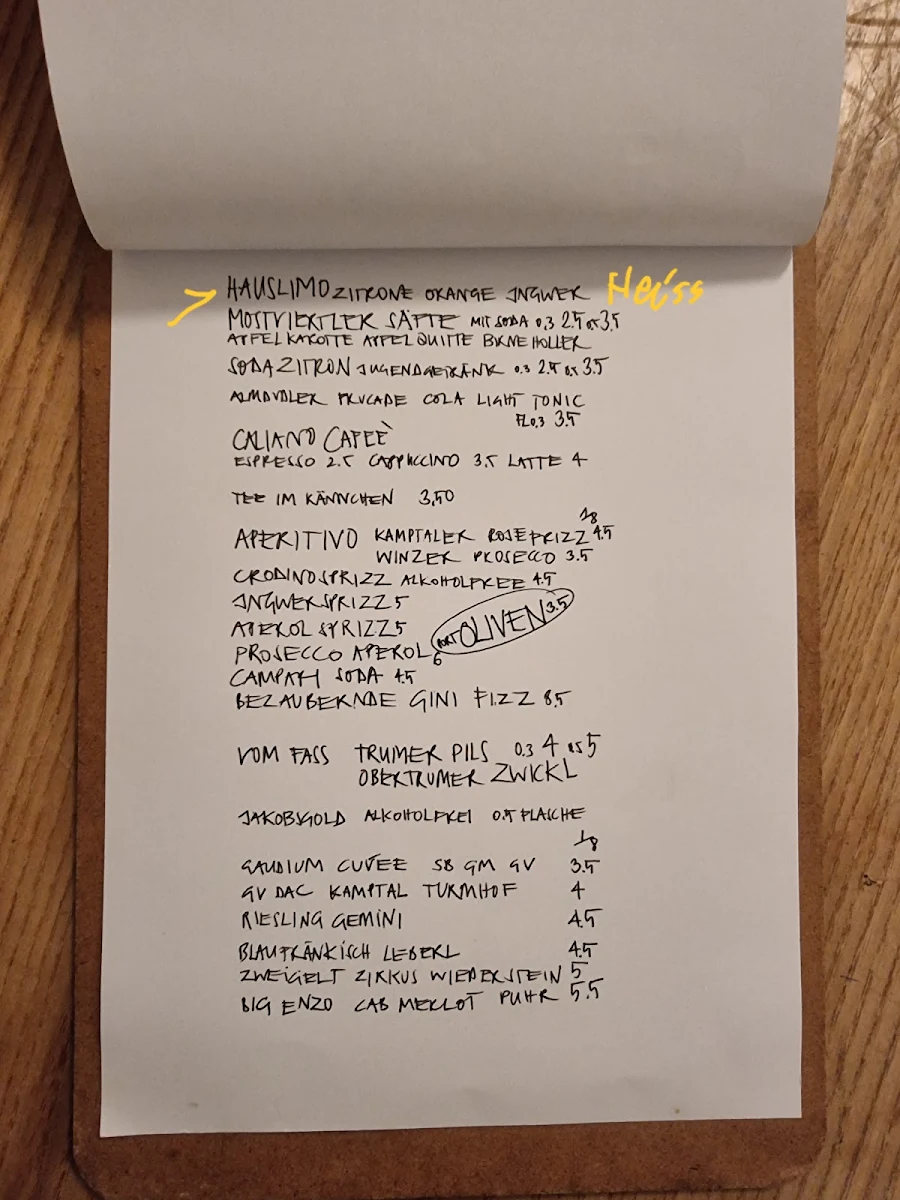 > HAUSLIMO ZITRONE ORANGE INGWER Heiss
MOSTVIERTLER SÄFTE MIT SODA 0,3 2.5 0.5 3.5
APFELKAROTTE APFELQUITTE BIRNE HOLLER
SODA ZITRON JUGENDGETRÄNK 0.3 2.5 0.5 3.5
ALMDUDLER FRUCADE COLA LIGHT TONIC
FL0,3 3.5
CALIANO CAFEÈ
ESPRESSO 2.5 CAPPUCCINO 3.5 LATTE 4
TEE IM KÄNNCHEN 3,50
1/8
APERITIVO KAMPTALER ROSEFRIZZ 4.5
WINZER PROSECCO 3.5
CRODINOSPRIZZ ALKOHOLFREE 4.5
INGWERSPRIZZ 5
APEROL SPRIZZ 5
PORT OLIVEN 3.5
PROSECCO APEROL 6
CAMPARI SODA 4.5
BEZAUBERNDE GINI FIZZ 8,5
VOM FASS TRUMER PILS 0.3 4 0.5 5
OBERTRUMER ZWICKL
JAKOBSGOLD ALKOHOLFREI 0.5 FLASCHE
1/8
GAUDIUM CUVÉE SB GM GV 3.5
GV DAC KAMPTAL TURMHOF 4
RIESLING GEMINI 4.5
BLAUFRÄNKISCH LEBERL 4.5
ZWEIGELT ZIRKUS WIEDERSTEIN 5
BIG ENZO CAB MERLOT PUHR 5.5